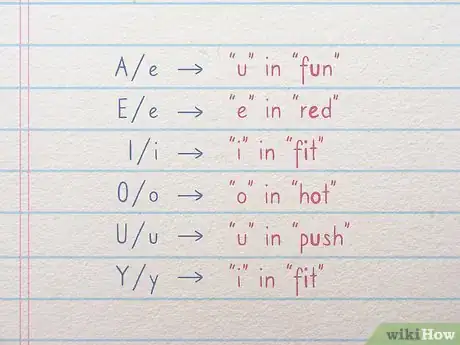 A/e → "u" in "fun"
E/e → "e" in "red"
I/i → "i" in "fit"
O/o → "o" in "hot"
U/u → "u" in "push"
Y/y → "i" in "fit"
wikiHow